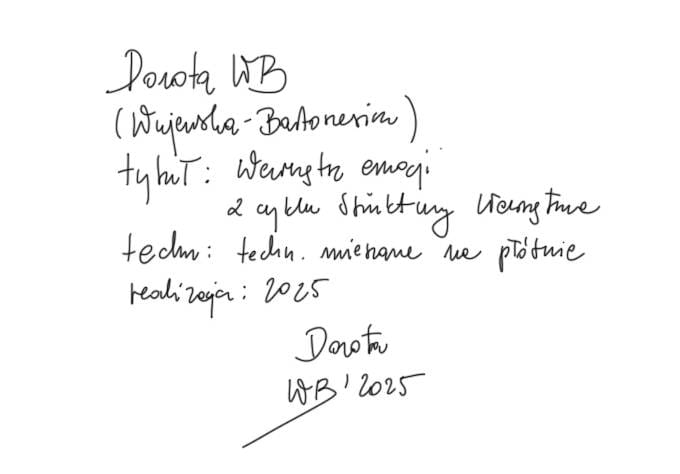 Dorota WB
(Wujewska-Bartonesim)
tytuł: Wewnątrz emocji
z cyklu Struktury Wewnętrzne
techn: techn. mieszane na płótnie
realizacja: 2025
Dorota
WB'2025